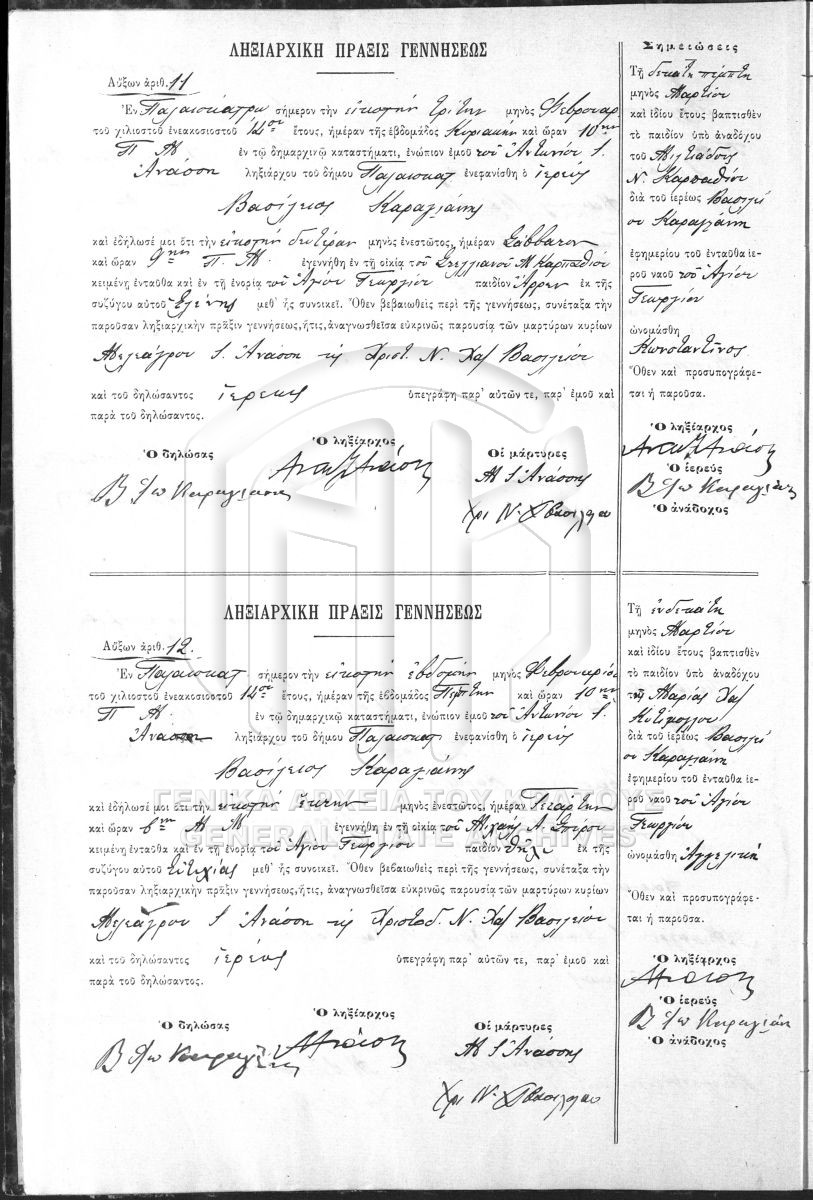 ΛΗΞΙΑΡΧΙΚΗ ΠΡΑΞΙΣ ΓΕΝΝΗΣΕΩΣ
Αὔξων ἀριθ. 11
Ἐν Παλαιοκάστρω σήμερον τὴν εἰκοστὴν τρίτην μηνὸς Φεβρουαρ.
τοῦ χιλιοστοῦ ἐνεακοσιοστοῦ 14ου ἔτους, ἡμέραν τῆς ἑβδομάδος Κυριακὴν καὶ ὥραν 10ην
Π Μ ἐν τῷ δημαρχικῷ καταστήματι, ἐνώπιον ἐμοῦ τοῦ Ἀντωνίου Ι.
Ἀνάσση ληξιάρχου τοῦ δήμου Παλαιοκαστ ἐνεφανίσθη ὁ ἱερεὺς
Βασίλειος Καραγιάννης
καὶ ἐδήλωσέ μοι ὅτι τὴν εἰκοστὴν δευτέραν μηνὸς ἐνεστῶτος, ἡμέραν Σάββατον
καὶ ὥραν 9ην Π. Μ. ἐγεννήθη ἐν τῇ οἰκίᾳ τοῦ Στυλιανοῦ Μ Καρπαθίου
κειμένῃ ἐνταῦθα καὶ ἐν τῇ ἐνορίᾳ τοῦ Ἁγίου Γεωργίου παιδίον Ἄρρεν ἐκ τῆς
συζύγου αὐτοῦ Ἑλένης μεθ' ἧς συνοικεῖ. Ὅθεν βεβαιωθεὶς περὶ τῆς γεννήσεως, συνέταξα τὴν
παροῦσαν ληξιαρχικὴν πρᾶξιν γεννήσεως, ἥτις, ἀναγνωσθεῖσα εὐκρινῶς παρουσίᾳ τῶν μαρτύρων κυρίων
Μελεάγρου Ι. Ἀνάσση Χριστ. Ν. Χ Βασιλείου
καὶ τοῦ δηλώσαντος ἱερέως ὑπεγράφη παρ' αὐτῶν τε, παρ' ἐμοῦ καὶ
παρὰ τοῦ δηλώσαντος.
Ὁ δηλώσας Ὁ ληξίαρχος Οἱ μάρτυρες
Β Καραγιάννης Μ Ι Ἀνάσσης
Χρ Ν. Χ Βασιλείου
Σημειώσεις
Τῇ δεκάτη πέμπτη
μηνὸς Μαρτίου
καὶ ἰδίου ἔτους βαπτισθὲν
τὸ παιδίον ὑπὸ ἀναδόχου
τοῦ Μιλτιάδου
Ν. Καρπαθίου
διὰ τοῦ ἱερέως Βασιλεί
ου Καραγιάννη
ἐφημερίου τοῦ ἐνταῦθα ἱε-
ροῦ ναοῦ τοῦ Ἁγίου
Γεωργίου
ὠνομάσθη
Κωνσταντῖνος
Ὅθεν καὶ προσυπογράφε-
ται ἡ παροῦσα.
Ὁ ληξίαρχος
Ὁ ἱερεὺς
Β Καραγιάννης
Ὁ ἀνάδοχος
ΛΗΞΙΑΡΧΙΚΗ ΠΡΑΞΙΣ ΓΕΝΝΗΣΕΩΣ
Αὔξων ἀριθ. 12.
Ἐν Παλαιοκαστ σήμερον τὴν εἰκοστὴν ἑβδόμην μηνὸς Φεβρουαρίου
τοῦ χιλιοστοῦ ἐνεακοσιοστοῦ 14ου ἔτους, ἡμέραν τῆς ἑβδομάδος Πέμπτην καὶ ὥραν 10ην
Π Μ. ἐν τῷ δημαρχικῷ καταστήματι, ἐνώπιον ἐμοῦ τοῦ Ἀντωνίου Ι.
Ἀνάσση ληξιάρχου τοῦ δήμου Παλαιοκαστ ἐνεφανίσθη ὁ ἱερεὺς
Βασίλειος Καραγιάννης
καὶ ἐδήλωσέ μοι ὅτι τὴν εἰκοστὴν ἕκτην μηνὸς ἐνεστῶτος, ἡμέραν Τετάρτην
καὶ ὥραν 6ην Μ Μ ἐγεννήθη ἐν τῇ οἰκίᾳ τοῦ Μιχαὴλ Λ. Σπύρου
κειμένῃ ἐνταῦθα καὶ ἐν τῇ ἐνορίᾳ τοῦ Ἁγίου Γεωργίου παιδίον θῆλυ ἐκ τῆς
συζύγου αὐτοῦ Εὐτυχίας μεθ' ἧς συνοικεῖ. Ὅθεν βεβαιωθεὶς περὶ τῆς γεννήσεως, συνέταξα τὴν
παροῦσαν ληξιαρχικὴν πρᾶξιν γεννήσεως, ἥτις, ἀναγνωσθεῖσα εὐκρινῶς παρουσίᾳ τῶν μαρτύρων κυρίων
Μελεάγρου Ι Ἀνάσση Χριστοδ. Ν. Χ Βασιλείου
καὶ τοῦ δηλώσαντος ἱερέως ὑπεγράφη παρ' αὐτῶν τε, παρ' ἐμοῦ καὶ
παρὰ τοῦ δηλώσαντος.
Ὁ δηλώσας Ὁ ληξίαρχος Οἱ μάρτυρες
Β Καραγιάννης Μ Ι Ἀνάσσης
Χρ Ν. Χ Βασιλείου
Τῇ ἑνδεκάτη
μηνὸς Μαρτίου
καὶ ἰδίου ἔτους βαπτισθὲν
τὸ παιδίον ὑπὸ ἀναδόχου
τῆς Μαρίας Χ
διὰ τοῦ ἱερέως Βασιλεί
ου Καραγιάννη
ἐφημερίου τοῦ ἐνταῦθα ἱε-
ροῦ ναοῦ τοῦ Ἁγίου
Γεωργίου
ὠνομάσθη Ἀγγελικὴ
Ὅθεν καὶ προσυπογράφε-
ται ἡ παροῦσα.
Ὁ ληξίαρχος
Ὁ ἱερεὺς
Β Καραγιάννη
Ὁ ἀνάδοχος
ΓΕΝΙΚΑ ΑΡΧΕΙΑ ΤΟΥ ΚΡΑΤΟΥΣ
GENERAL STATE ARCHIVES